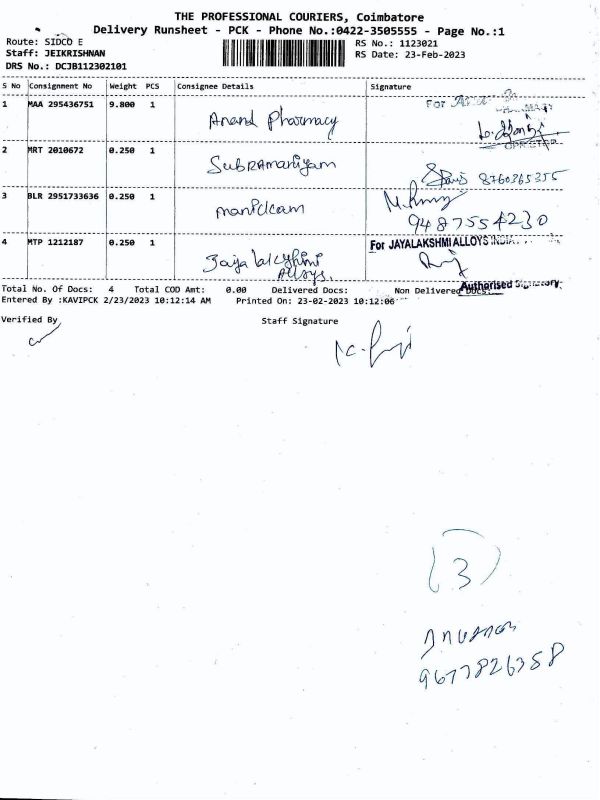 THE PROFESSIONAL COURIERS, Coimbatore
Delivery Runsheet - PCK - Phone No.:0422-3505555 - Page No.:1
Route: SIDCO E
RS No.: 1123021
Staff: JEIKRISHNAN
RS Date: 23-Feb-2023
DRS No.: DCJB112302101
S No Consignment No Weight PCS Consignee Details Signature
1 MAA 295436751 9.800 1 Anand Pharmacy FOR
2 MRT 2010672 0.250 1 Subramaniyam 8760365355
3 BLR 2951733636 0.250 1 manickam
9487554230
4 MTP 1212187 0.250 1 Jaya lakshmi For JAYALAKSHMI ALLOYS INDIA
Alloys.
Authorised Signatory.
Total No. Of Docs: 4 Total COD Amt: 0.00 Delivered Docs: Non Delivered Docs:
Entered By :KAVIPCK 2/23/2023 10:12:14 AM Printed On: 23-02-2023 10:12:06
Verified By Staff Signature
3
9677826358